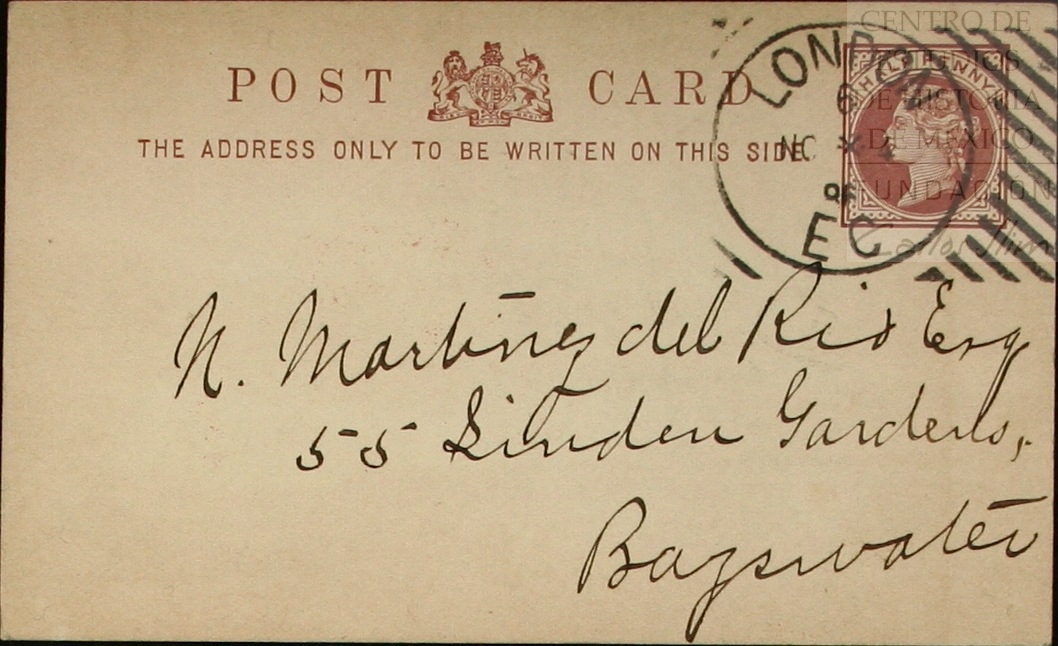 CENTRO DE
DE HISTORIA
DE MEXICO
FUNDACION
Carlos Slim
LONDON
6
NO
E C
HALFPENNY
POST CARD
THE ADDRESS ONLY TO BE WRITTEN ON THIS SIDE.
N. Martinez del Rio Esq
55 Linden Gardens,
Bayswater